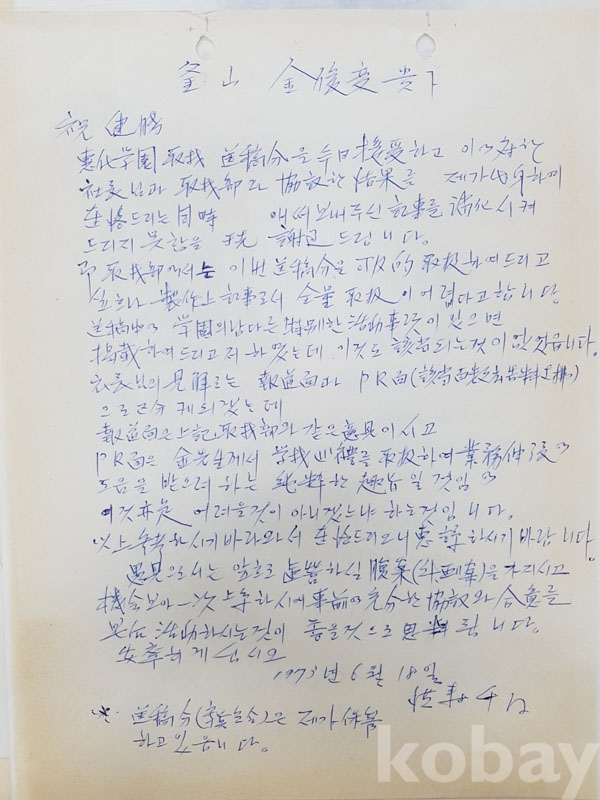 釜山 金俊変 貴下
祝 健勝
惠化学園 取材 送稿分을 今日 接受하고 이에 対한
社長님과 取材部와 協議한 結果를 제가 代身하여
在惱드리는 同時 애써 보내주신 記事를 活化시켜
드리지 못함을 謝過드립니다.
即 取材部에서는 이번 送稿分을 可及的 取扱하여드리고
싶으나 製作上 記事로서 全量 取扱이 어렵다고 합니다
送稿中에 学園의 남다른 特別한 活動事項이 있으면
揭載하여드리고저 하였는데 그것도 該当되는것이 없었읍니다.
社長님의 見解로는 報道面과 PR面(該当面
으로 区分케 되겠는데
報道面은 上記 取材部와 같은 意見이시고
PR面은 金先生께서 学校 心禮를 取扱하여 業務伸張에
도움을 받으려 하는 純粹한 趣旨일 것임에
이것 亦是 어려울것이 아니겠느냐 하는것입니다.
以上 参考하시기 바라와서 드리오니 惠諒하시기 바랍니다.
愚見으로서는 앞으로 運營하실 腹案(計劃案)을 가지시고
機会보아 一次 上京하시여 事前에 充分한 協議와 合意를
본後 活動하시는것이 좋을것으로 思料됩니다.
安寧히 게십시고
1973年 6月 18日
※ 送稿分(寫眞包含)은 제가 保管
하고 있읍니다.
kobay